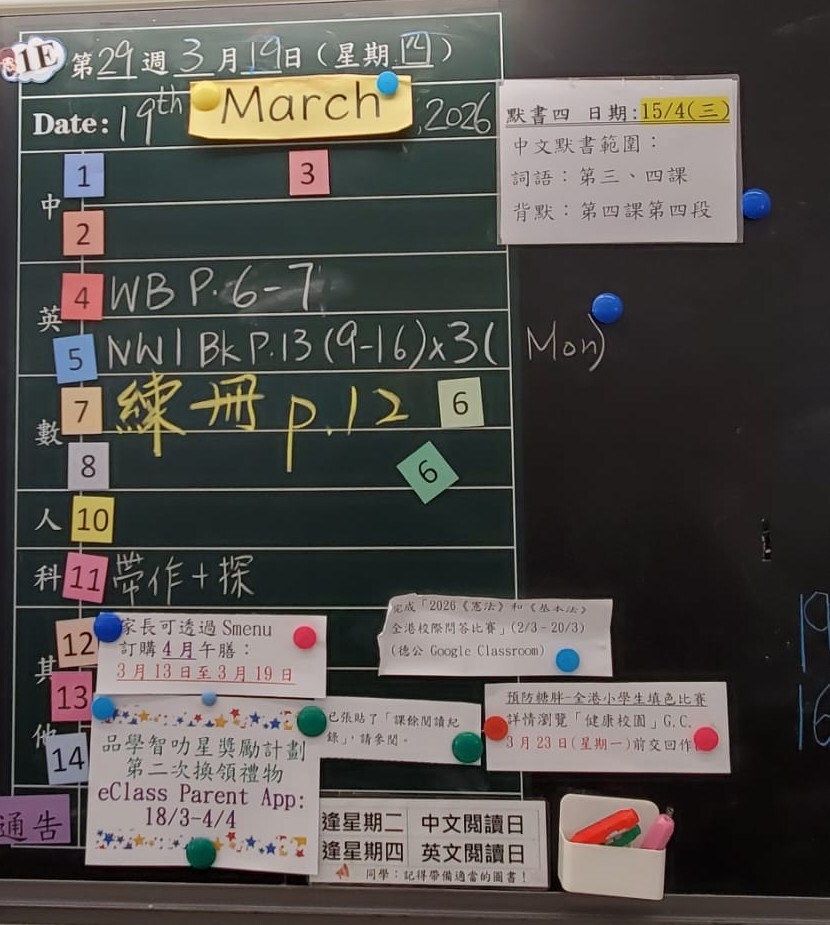 1E 第29週3月19日(星期四)
Date: 19th March, 2026
默書四 日期:15/4(三)
中文默書範圍：
詞語：第三、四課
背默：第四課第四段
中 1 3
2
英 4 WB P. 6-7
5 NW1 Bk P.13 (9-16)×3( Mon)
數 7 練冊 p.12 6
8 6
人 10
科 11 帶作+探
其他
12
13
14
家長可透過 Smenu
訂購 4 月午膳：
3 月 13 日至 3 月 19 日
完成「2026《憲法》和《基本法》
全港校際問答比賽」(2/3-20/3)
(德公 Google Classroom)
品學智叻星獎勵計劃
第二次換領禮物
eClass Parent App:
18/3-4/4
已張貼了「課餘閱讀紀
錄」，請參閱。
預防糖胖-全港小學生填色比賽
詳情瀏覽「健康校園」G.C.
3 月 23 日(星期一)前交回作
通告
逢星期二 中文閱讀日
逢星期四 英文閱讀日
同學：記得帶備適當的圖書！
19
16